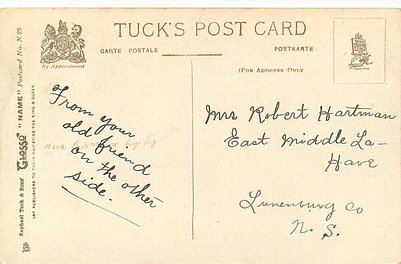 TUCK'S POST CARD
CARTE POSTALE
POSTKARTE
By Appointment
(FOR ADDRESS ONLY
Raphael Tuck & Sons'
"GLOSSO" "NAME" Postcard No. N 25
ART PUBLISHERS TO THEIR MAJESTIES THE KING & QUEEN.
From your
old friend
on the other
side.
by by
Mrs Robert Hartman
East Middle La-
Have
Lunenburg Co
N. S.